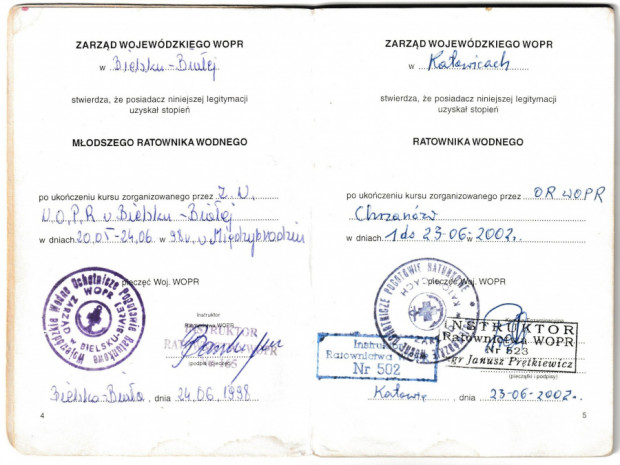 ZARZĄD WOJEWÓDZKIEGO WOPR
w Bielsku-Białej
stwierdza, że posiadacz niniejszej legitymacji
uzyskał stopień
MŁODSZEGO RATOWNIKA WODNEGO
po ukończeniu kursu zorganizowanego przez Z.W.
W.O.P.R w Bielsku-Białej
w dniach 20.05-24.06. w 98r. w Międzybrodziu
pieczęć Woj. WOPR
Instruktor
Ratownictwa WOPR
Bielsko-Biała, dnia 24.06.1998
4
ZARZĄD WOJEWÓDZKIEGO WOPR
w Katowicach
stwierdza, że posiadacz niniejszej legitymacji
uzyskał stopień
RATOWNIKA WODNEGO
po ukończeniu kursu zorganizowanego przez OR WOPR
Chrzanów
w dniach 1 do 23-06 w 2002r.
pieczęć Woj. WOPR
INSTRUKTOR
Ratownictwa WOPR
Nr 523
mgr Janusz Prętkiewicz
Instruktor
Ratownictwa
Nr 502
(pieczątki i podpisy)
, dnia 23-06-2002r.
5